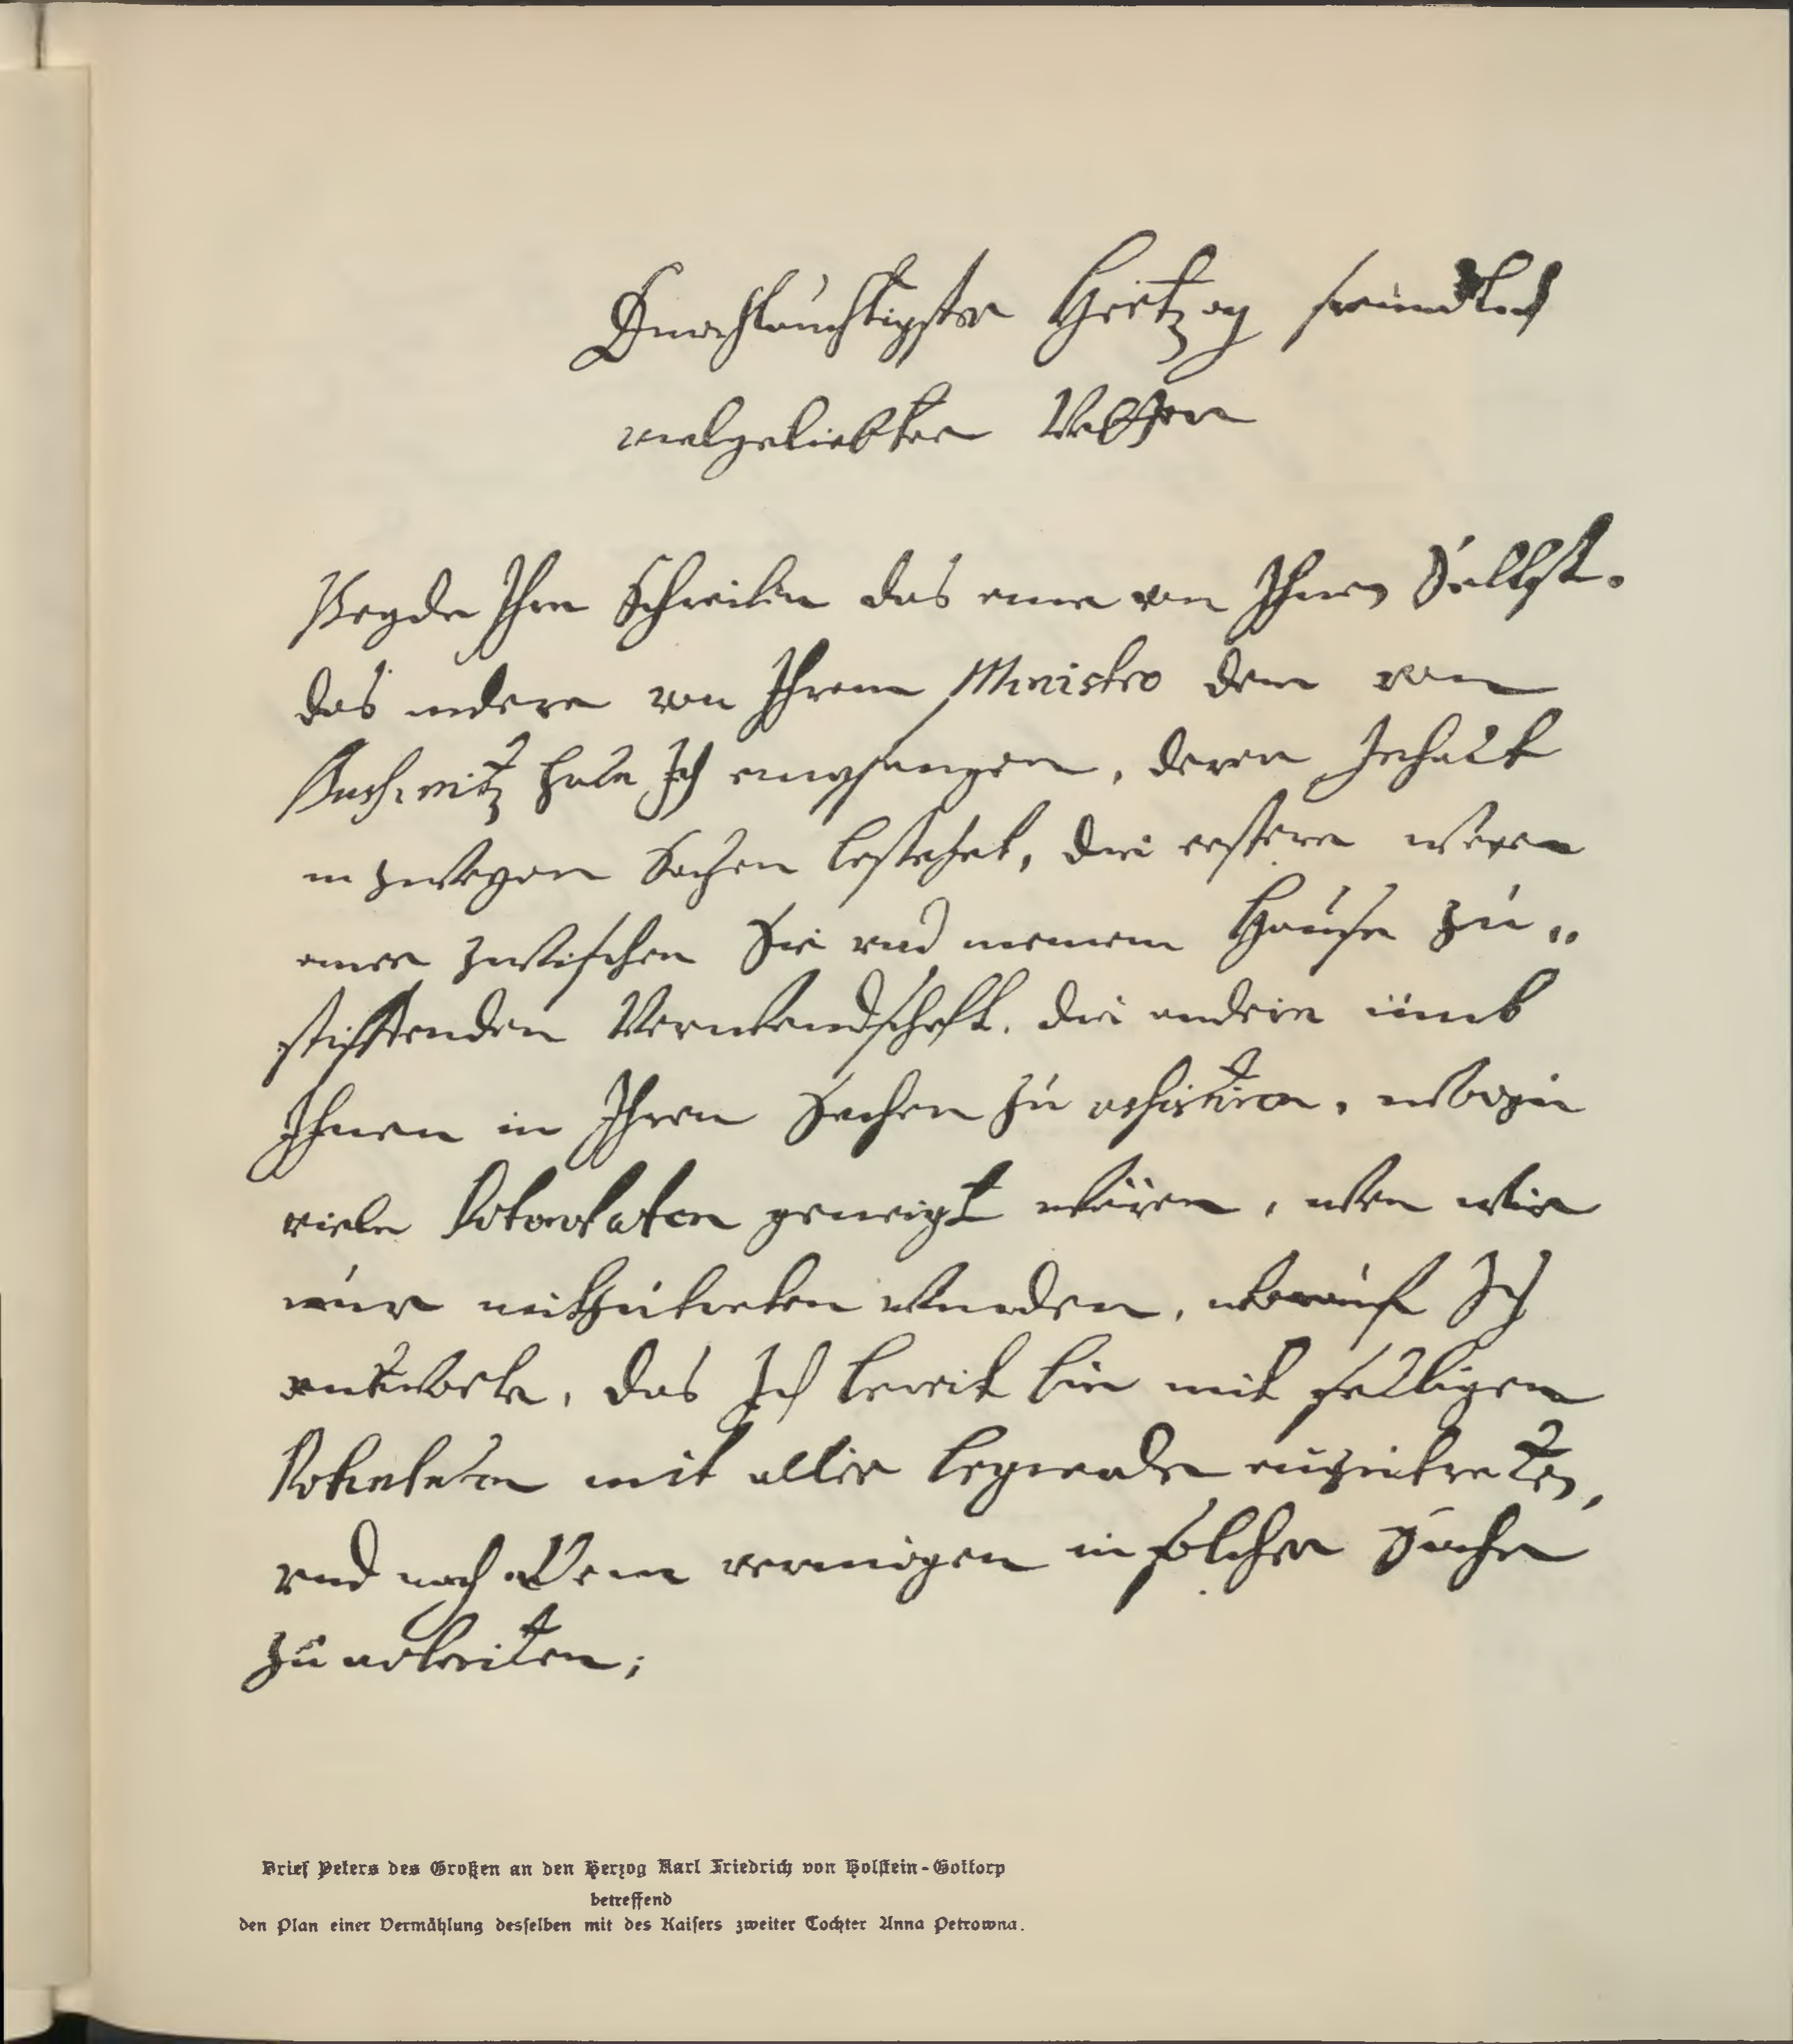 Durchlauchtigster Hertzog freundlich
vielgeliebter Vetter
Beyde Ihre Schreiben das eine von Ihnen Selbst.
das andere von Ihrem Ministro dem von
habe Ich empfangen, deren Inhalt
in zweyen Sachen bestehet, die erstere wegen
einer zwischen Sie und meinem Hause zu„
stifftenden Verwandschafft. die andere umb
Ihnen in Ihren Sachen zu assistiren, wozu
viele Potentaten geneigt wären, wen wir
nur mitzutreten wurden, worauf Ich
antworte, das Ich bereit bin mit selbigen
Potentaten mit aller begierde einzutreten,
und nach allem vermögen in solcher Sache
zu arbeiten;
Brief Peters des Großen an den Herzog Karl Friedrich von Holstein-Gottorp
betreffend
den Plan einer Vermählung desselben mit des Kaisers zweiter Tochter Anna Petrowna.